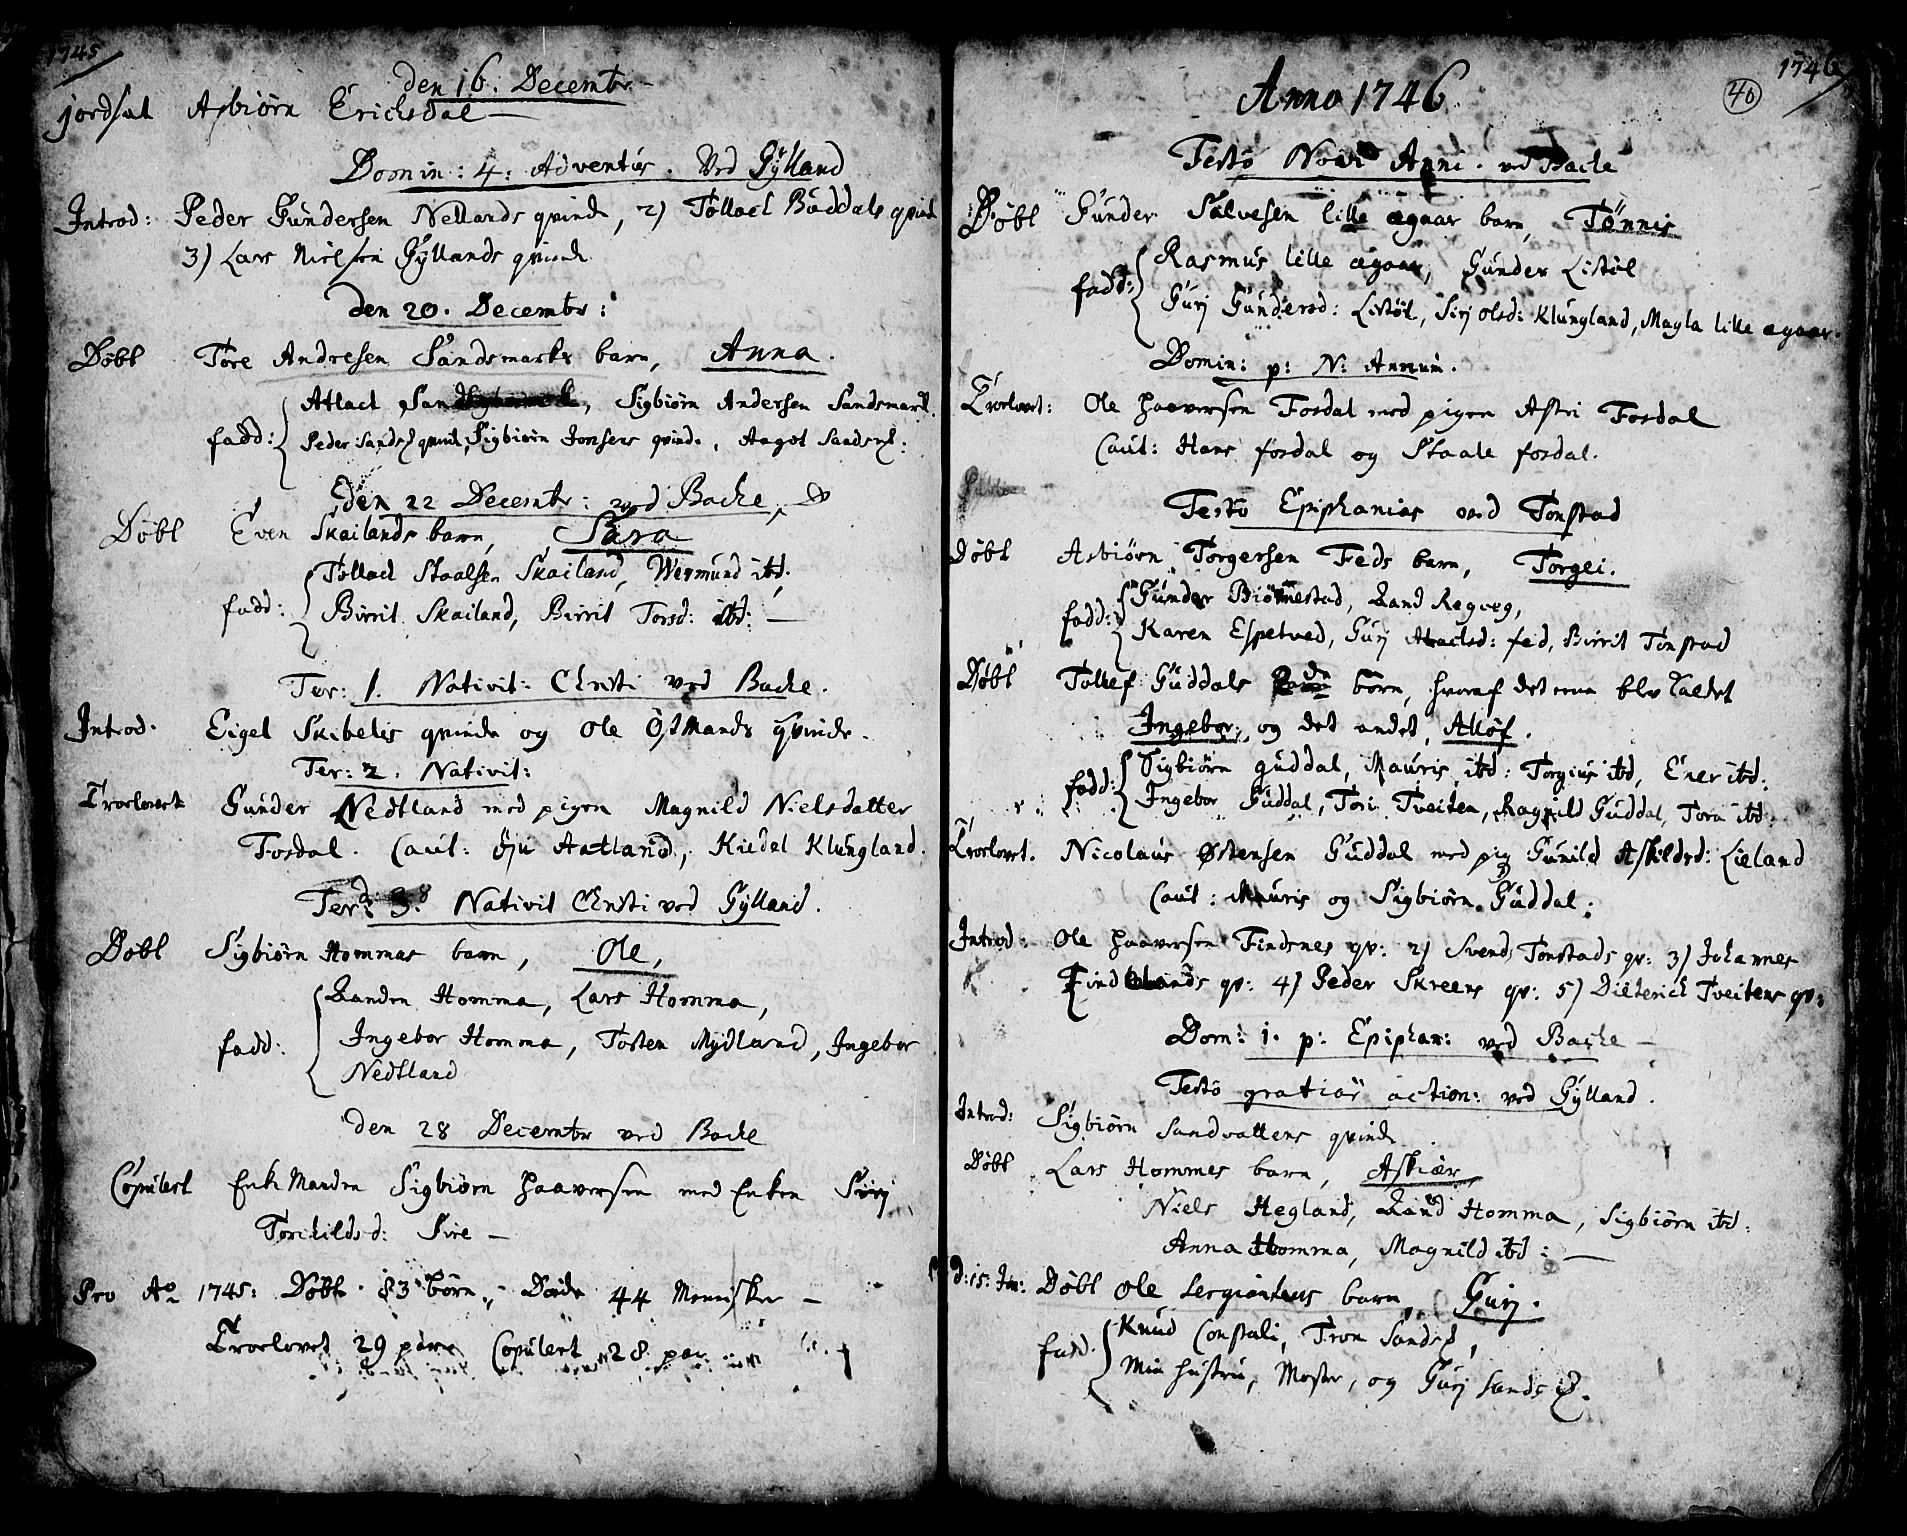 1745
den 16. Decembr
jordsat Asbiørn Erichsdal
Domin: 4: Adventus. Ved Gÿlland
Introd: Peder Gundersen Nellands qvinde, 2) Tollach Buddals qvinde
3) Lars Nielsen Gÿllands qvinde
den 20. Decembr:
Døbt Tore Andresen Sandsmarks barn, Anna.
Atlach, Sigbiørn Andersen Sandsmark.
fadd: Peder Sands qvinde, Sigbiørn Jonsens qvinde, Aagot
den 22 Decembr: ved Backe
Døbt Even Skailands barn, Sara
Tollach Staalsen Skailand, Wermund ibd:
fadd: Birrit Skailand, Birrit Torsd: ibd:
Ter: 1. Nativit: Christi ved Backe.
Introd. Eigel Skibelis qvinde og Ole Østlands qvinde.
Ter: 2. Nativit:
Troelovet Gunder Nedtland med pigen Magnild Nielsdatter
Fosdal. Caut: Aatland, Kiedel Klungland.
3. Nativit Christi ved Gÿlland.
Døbt Sigbiørn Hommas barn, Ole,
Randin Homma, Lars Homma,
fadd: Ingebor Homma, Tosten Mydland, Ingebor
Nedtland
den 28 Decembr ved Backe
Copulert Enke Manden Sigbiørn Haaversen med Enken Sirj
Torkildsd: Sire
Pro Ao 1745: Døbte 83 børn, Døde 44 Mennisker
Troelovet 29 par Copulert 28 par
1746
40
Anno 1746
Festo Novi Anni. ved Backe
Døbt Gunder Salvesen lille ægaar barn, Tønnis
Rasmus lille ægaar, Gunder Listøl
fadd: Gurj Gundersd: Listøl, Sirj Olsd: Klungland, Magla lille ægaar.
Domin: p: N: Annum.
Troelovet: Ole Haaversen Fosdal med pigen Astri Fosdal
Caut: Hans fosdal og Staale fosdal.
Festo Epiphanias ved Tonstad
Døbt Asbiørn Torgersen Feds barn, Torgei.
Gunder Biørnestad, Rand Regevg,
fadd: Karen Espetved, Gurj Atlachsd: fed, Birrit Tonstad
Døbt Tollef Guddals børn, hvoraf det eene blev kaldet
Ingebor, og det andet, Alløf.
Sigbiørn guddal, Mauris ibd: Torgius ibd, Ener ibd:
fadd: Ingebor Guddal, Tori Tveiten, Magnild Guddal, Tora ibd:
Troelovet. Nicolaus Østensen Guddal med pig Gunild Askildsd: Lieland
Caut: Mauris og Sigbiørn Guddal.
Introd: Ole Haaversen Findsnes qv: 2) Svend Tonstads qv: 3) Johannes
qv: 4) Peder Skreens qv: 5) Dieterich Tveitens qv:
Dom: 1. p: Epiphan: ved Backe
Festo gratiar action: ved Gÿlland.
Introd: Sigbiørn Sandvattens qvinde
Døbt Lars Hommes barn, Askiær,
Niels Hegland, Rand Homma, Sigbiørn ibd:
Anna Homma, Magnild ibd:
D: 15: Jan: Døbt Ole Sergiantens barn, Gurj.
Knud Constali, Tron Sands,
fadd. Min Hustru, Moster, og Gurj Sands